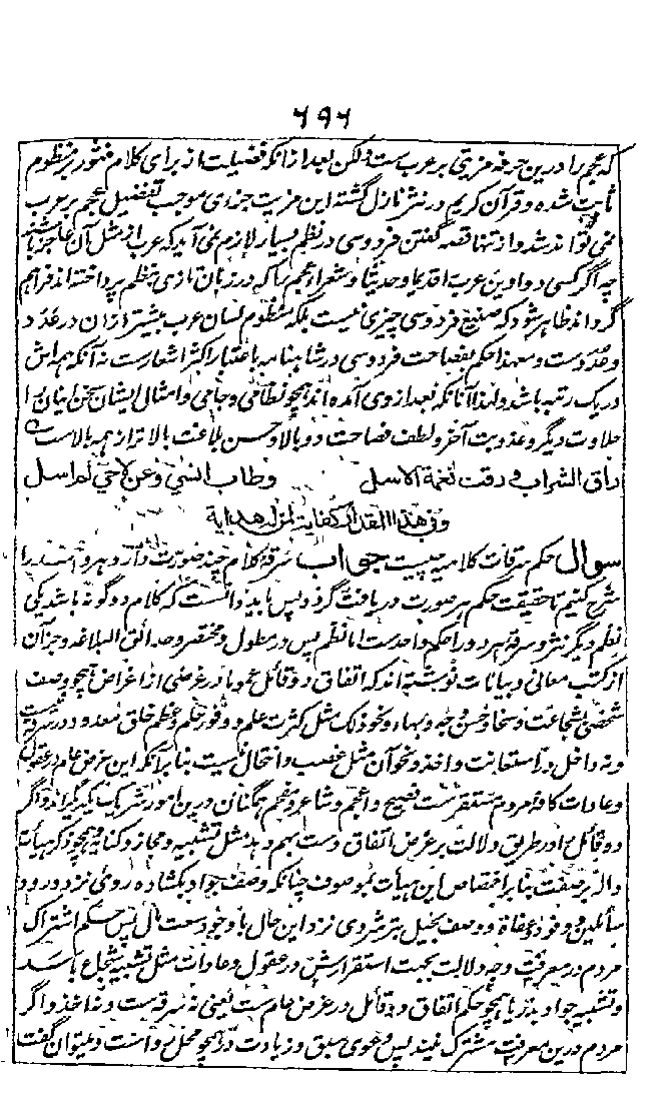 ۶۹۶
که عجم را درین حرفه مزیتی بر عرب ست ولکن بعد از انکه فضیلت از برای کلام منثور بر منظوم
ثابت شده و قرآن کریم در نثر نازل گشته این مزیت جزءی موجب تفضیل عجم بر عرب
نمی تواند شد و از تنها قصه گفتن فردوسی در نظم بسیار لازم نمی آید که عرب از مثل آن عاجز باشند
چه اگر کسی دواوین عرب اقدیما و حدیثا و شعراء عجم را که در زبان تازی بنظم پرداخته اند فراهم
گرداند ظاهر شود که صنیع فردوسی چیزی نیست بلکه منظوم لسان عرب بیشتر ازان در عدد
و عدد ست و معهذا حکم بفصاحت فردوسی در شاهنامه باعتبار اکثر اشعارست نه آنکه همه اش
در یک رتبه باشد و لهذا آنانکه بعد از وی آمده اند همچو نظامی و جامی و امثال ایشان سخن اینان را
حلاوت دیگر و عذوبت آخر و لطف فصاحت دوبالا و حسن بلاغت بالاتر از همه بالاست
راق الشراب و رقت نغمة الاسل وطاب انسی وعن لاحی لم اسل
وفی هذا المقدار کفایة لمن له هدایة
سوال حکم سرقات کلامیه چیست جواب سرقۀ کلام چند صورت دارد و هر واحد را
شرح کنیم تا حقیقت حکم هر صورت دریافت گردد پس باید دانست که کلام دو گونه باشد یکی
نظم دیگر نثر و سرقۀ هر دو را حکم واحدست اما نظم پس در مطول و مختصر و حدائق البلاغه و جز آن
از کتب معانی و بیانات نوشته اند که اتفاق دو قائل عموما در غرضی از اغراض همچو وصف
شخصی بشجاعت و سخا و حسن وجه و بهاء و نحو ذلک مثل کثرت علم و وفور حلم و عظم خلق معدود در سرقه نیست
و نه داخل در استعانت و اخذ و نحو آن مثل غصب و انتحال نیست بنا بر آنکه این غرض عام در عقول
و عادات کافۀ مردم متقررست فصیح و اعجم و شاعر و مفحم همگنان درین امور شریک یکدیگراند و اگر
دو قائل را در طریق دلالت بر غرض اتفاق دست بهم دهد مثل تشبیه و مجاز و کنایه و همچو ذکر هیأت
داله بر صفت بنا بر اختصاص این هیأت بموصوف چنانکه وصف جواد بکشاده روئی نزد ورود
سائلین و وفود عفاة و وصف بخیل بترشروی نزد این حال با وجود سعت مال پس حکم اشتراک
مردم در معرفت وجه دلالت بجهت استقرارش در عقول و عادات مثل تشبیه شجاع باسد
و تشبیه جواد بدریا همچو حکم اتفاق دو قائل در غرض عام ست یعنی نه سرقه ست و نه اخذ و اگر
مردم درین معرفت مشترک نیند پس دعوی سبق و زیادت در همچو محل رواست و میتوان گفت